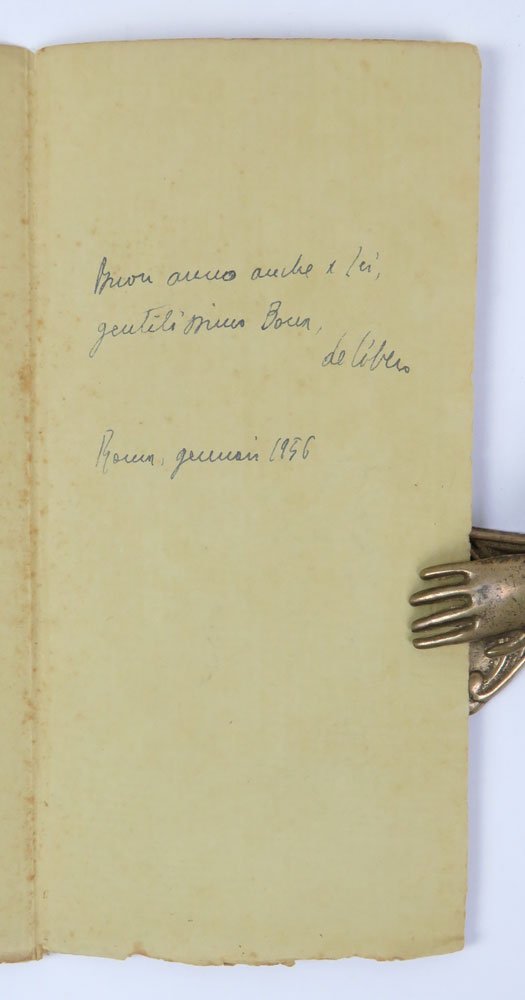 Buon anno anche a Lei,
gentilissimo Bona,
de Libero
Roma, gennaio 1956